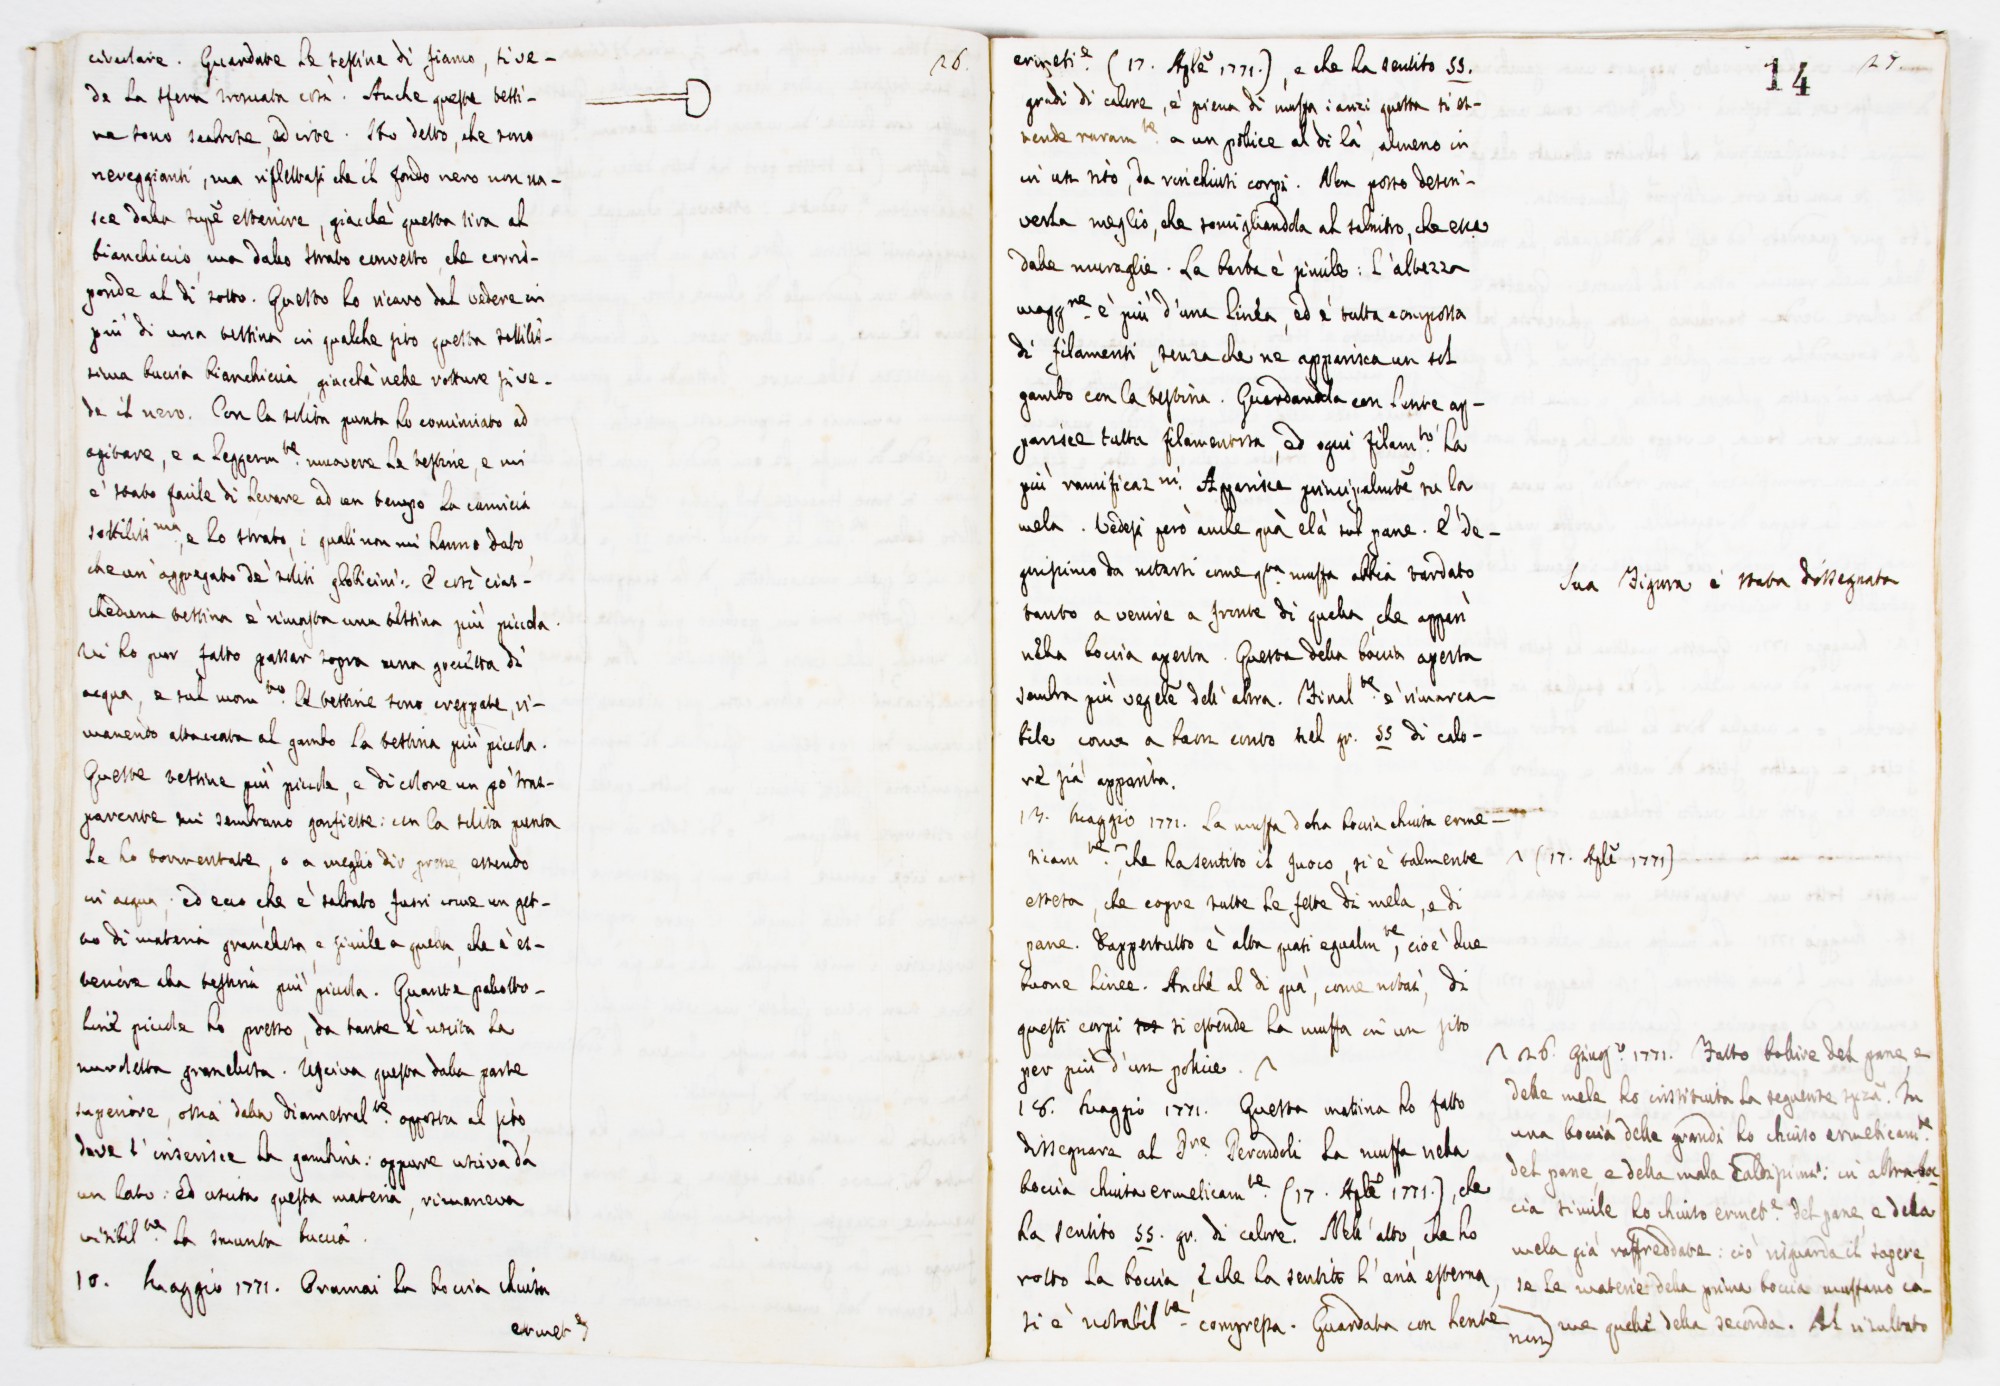 26.
circolare. Guardate le testine di fianco, si ve-
de la sfera troncata così. Anche queste testi-
ne sono scabrose, ed irte. Ho detto, che sono
nereggianti, ma riflettasi che il fondo nero non na-
sce dalla supe esteriore, giacchè questa tira al
bianchiccio, ma dallo strato convesso, che corri-
sponde al di sotto. Questo lo ricavo dal vedere in
più di una testina in qualche sito questa sottilis-
sima buccia bianchiccia, giacchè nelle rotture si ve-
de il nero. Con la solita punta ho cominciato ad
agitare, e a leggermte. muovere le testine, e mi
è stato facile di levare ad un tempo la camicia
sottilissma, e lo strato, i quali non mi hanno dato,
che un' aggregato de' soliti globicini. E così cias-
cheduna testina è rimasta una testina più piccola.
Vi ho per fatto passar sopra una gocciola di
acqua, e sul momto. le testine sono creppate, ri-
manendo attaccata al gambo la testina più piccola.
Queste testine più piccole, e di colore un po' tras-
parente mi sembrano gonfiette: con la solita punta
le ho tormentate, o a meglio dir presse, essendo
in acqua, ed ecco, che è saltato fuori come un get-
to di materia granellosa, e simile a quella, che è es-
teriore alla testina più piccola. Quante pallotto-
line piccole ho presso, da tante è uscita la
nuvoletta granellosa. Usciva questa dalla parte
superiore, ossia dalla diametralte. opposta al sito,
dove s' inserisce la gambina: oppure usciva da
un lato: ed uscita questa materia, rimaneva
visibilte. la smunta buccia.
10. Maggio 1771. Oramai la boccia chiusa
ermete
27.
14
ermete. (17. Aple 1771.), e che ha sentito 55.
gradi di calore, è piena di muffa: anzi questa si es-
tende raramte. a un pollice al di là, almeno in
in un sito, da rinchiusi corpi. Non posso descri-
verla meglio, che somigliandola al salnitro, che esce
dalle muraglie. La barba è simile: l'altezza
maggre. è più d'una linea, ed è tutta composta
di filamenti, senza che ne apparisca un sol
gambo con la testina. Guardandola con lente ap-
parisce tutta filamentosa, ed ogni filamto. ha
più ramificazni. Apparisce principalmte su la
mela. Vedesi però anche quà e là sul pane. E' de-
gnissimo da notarsi come qta. muffa abbia tardato
tanto a venire a fronte di quella, che apparì
nella boccia aperta. Questa della boccia aperta
sembra più vegete dell'altra. Finalte. è rimarca-
bile come a buon conto nel gr. 55 di calo-
re sia apparita.
Sua Figura è stata dissegnata
13. Maggio 1771. La muffa della boccia chiusa erme-
ticamte. ^, che ha sentito il fuoco, si è talmente
^ (17. Aple 1771)
estesa, che copre tutte le fette di mela, e di
pane. Dappertutto è alta quasi egualmte, cioè due
buone linee. Anche al di quà, come notai, di
questi corpi si estende la muffa in un sito
per più d'un pollice. ^
18. Maggio 1771. Questa mattina ho fatto
dissegnare al Dre. la muffa nella
boccia chiusa ermeticamte. (17. Aple 1771.), che
ha sentito 55. gr. di calore. Nell'atto, che ho
rotto la boccia, e che ha sentito l'aria esterna,
si è notabilte. compressa. Guardata con lente
non
^ 26. Giugo. 1771. Fatto bollire del pane, e
delle mele ho instituita la seguente spza. In
una boccia delle grandi ho chiuso ermeticamte.
del pane e della mela caldissimi: in altra boc
cia simile ho chiuso ermete. del pane, e della
mela già raffreddate: ciò riguarda il sapere,
se le materie della prima boccia muffano co-
me quelle della seconda. Al risultato